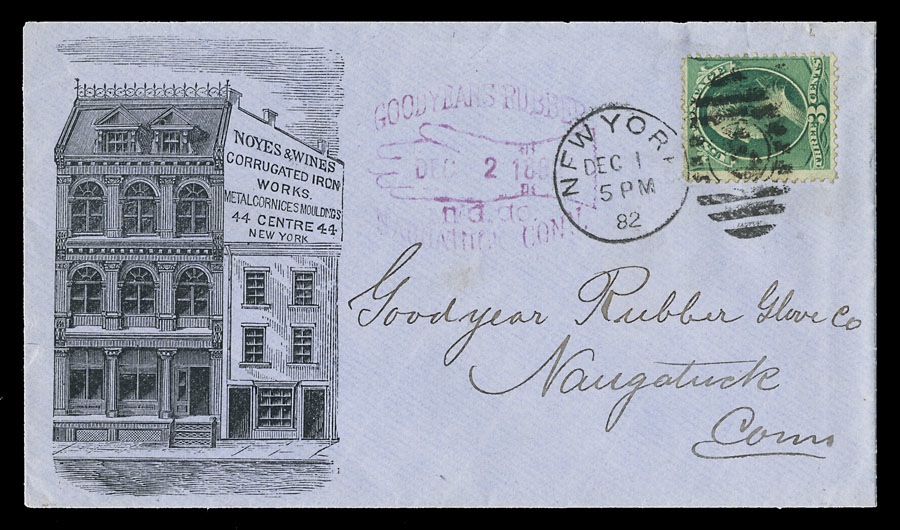 NOYES & WINES
CORRUGATED IRON
WORKS.
METAL CORNICES MOULDINGS
44 CENTRE 44
NEW YORK
GOODYEARS RUBBER
DEC 2 188
CONN
NEW YORK
DEC 1
5 PM
82
Goodyear Rubber Glove Co
Naugatuck
Conn